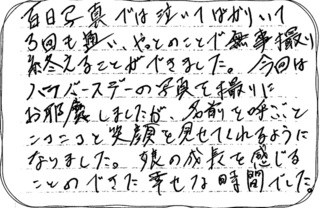 百日写真では泣いてばかりいて
3回も通い、やっとのことで無事撮り
終えることができました。今回は
ハーフバースデーの写真を撮りに
お邪魔しましたが、名前を呼ぶと
ニコニコと笑顔を見せてくれるように
なりました。娘の成長を感じる
ことのできた幸せな時間でした。